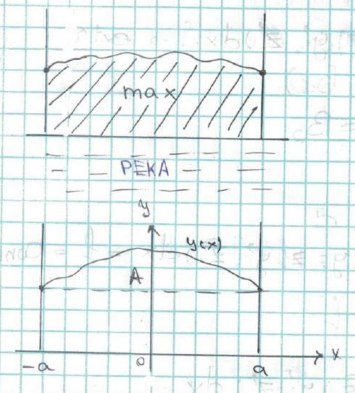 max
РЕКА
y
y(x)
A
-a
0
a
x